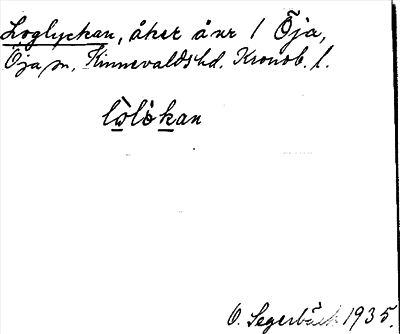 Loglyckan, åker å nr 1 Öja,
Öja sn, Kinnevalds hd, Kronob. l.
lo̲lök̲an
O. Segerbäck 1935.